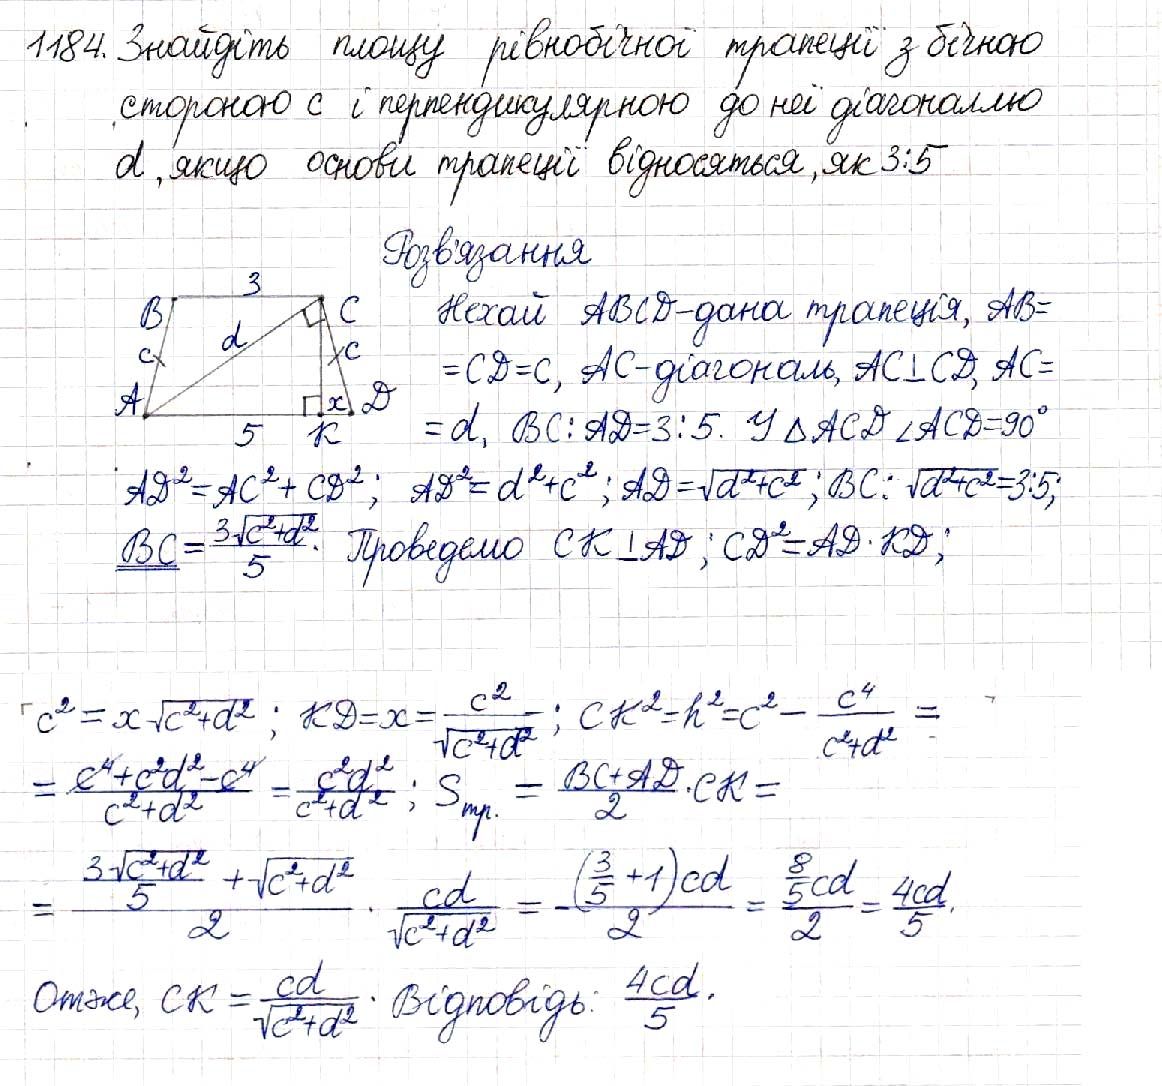 1184. Знайдіть площу рівнобічної трапеції з бічною
стороною c і перпендикулярною до неї діагоналлю
d, якщо основи трапеції відносяться, як 3:5
Розв'язання
3
B C
d
c c
A x D
5 K
Нехай ABCD-дана трапеція, AB=
=CD=C, AC-діагональ, AC⊥CD, AC=
=d, BC:AD=3:5. У △ACD ∠ACD=90°
AD²=AC²+CD²; AD²=d²+c²; AD=√(d²+c²); BC:√(d²+c²)=3:5;
BC=3√(c²+d²)/5. Проведемо CK⊥AD; CD²=AD·KD;
c²=x√(c²+d²); KD=x=c²/√(c²+d²); CK²=h²=c²-c⁴/(c²+d²)=
=(c⁴+c²d²-c⁴)/(c²+d²)=c²d²/(c²+d²); Sтр.=(BC+AD)/2·CK=
=(3√(c²+d²)/5+√(c²+d²))/2·cd/√(c²+d²)=(3/5+1)cd/2=(8/5cd)/2=4cd/5.
Отже, CK=cd/√(c²+d²). Відповідь: 4cd/5.